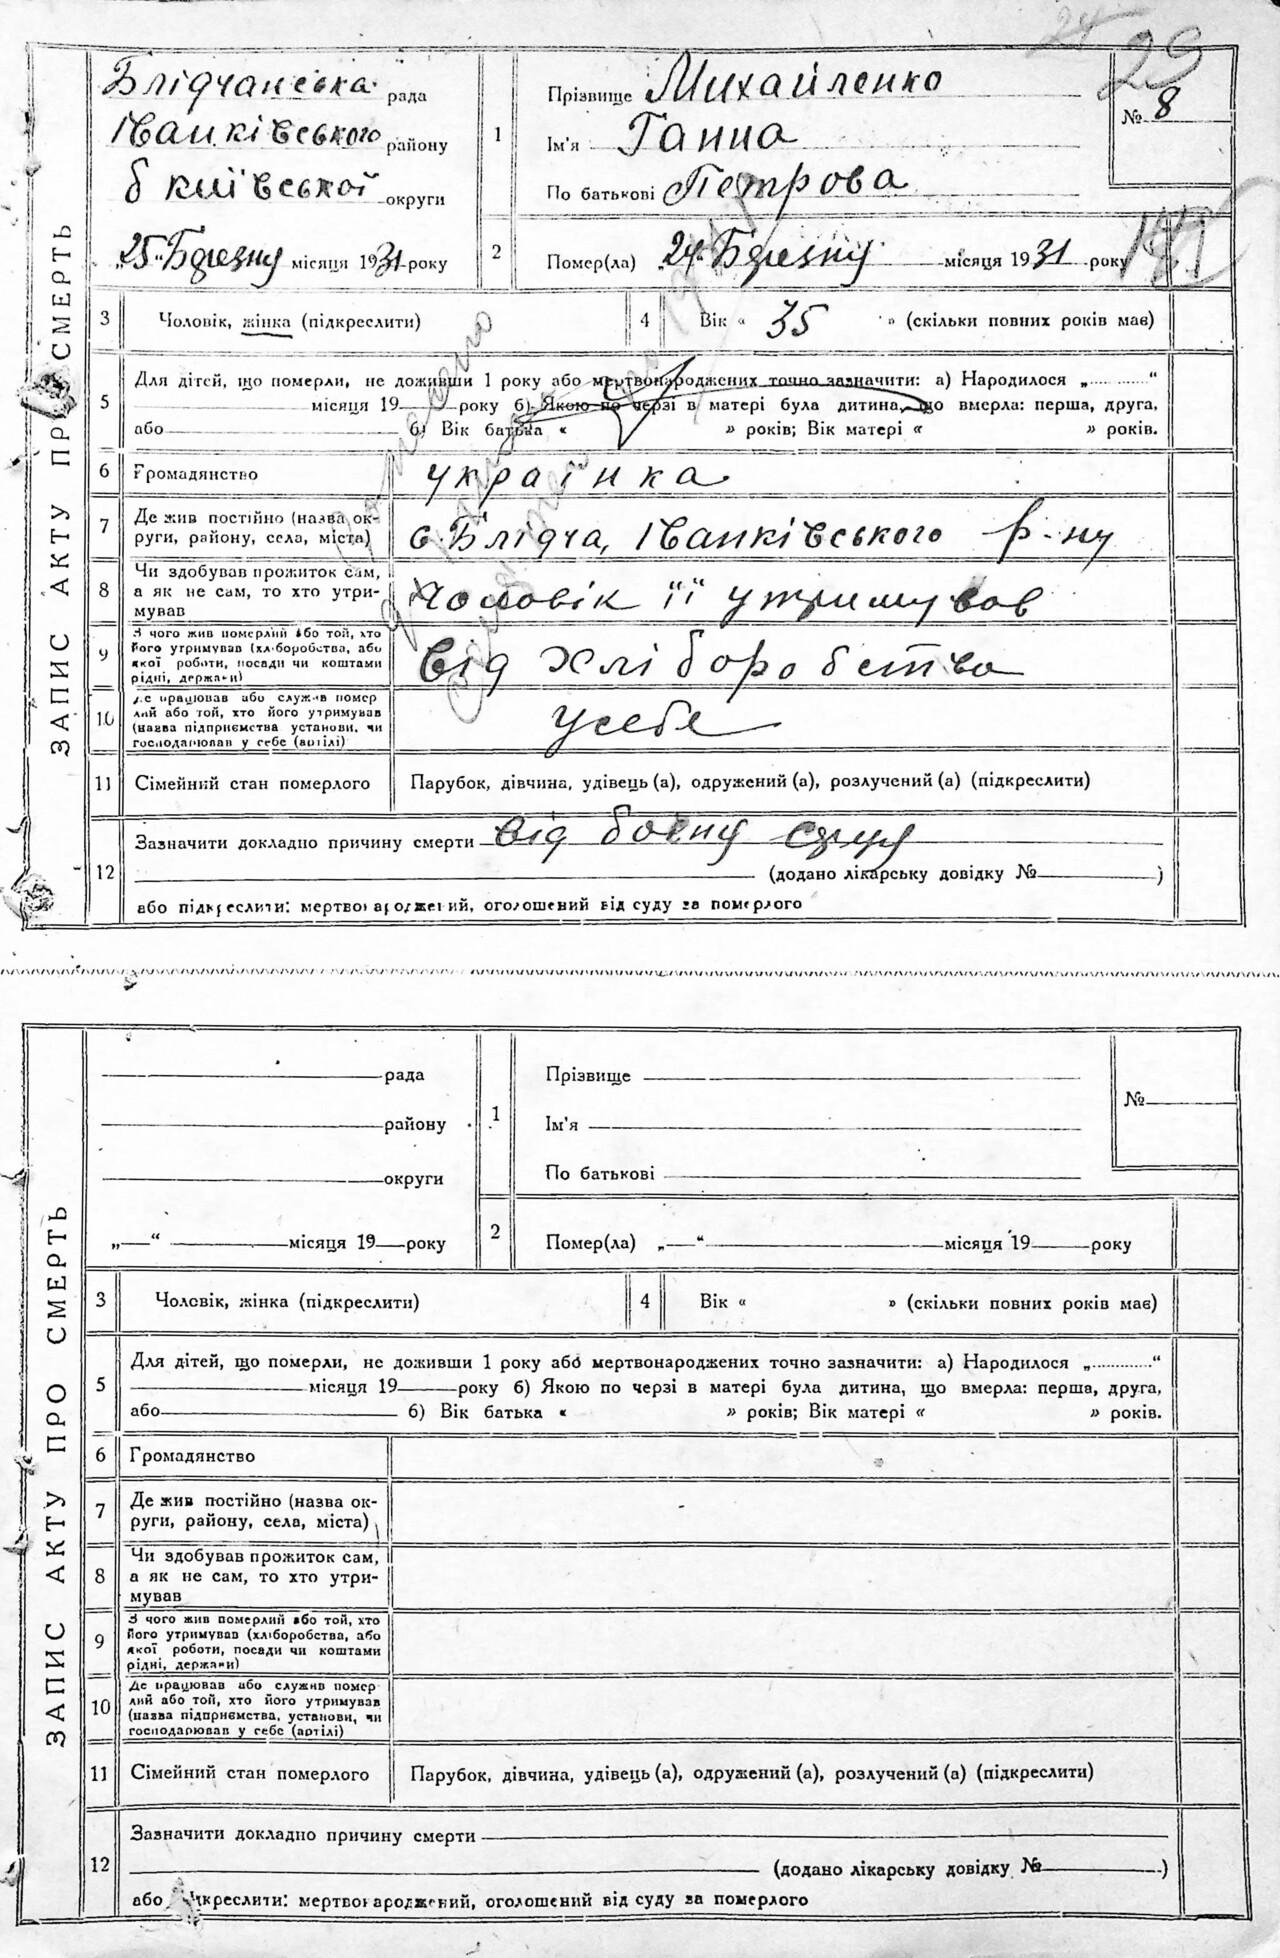 29
Блідчанська рада
Іванківського району
б київської округи
„25“ Березня місяця 1931 року
1
Прізвище Михайленко
Ім'я Ганна
По батькові Петрова
№ 8
2
Помер(ла) „24“ Березня місяця 1931 року
ЗАПИС АКТУ ПРО СМЕРТЬ
3 Чоловік, жінка (підкреслити) 4 Вік « 35 » (скільки повних років має)
5 Для дітей, що померли, не доживши 1 року або мертвонароджених точно зазначити: а) Народилося „............“
місяця 19 року б) Якою по черзі в матері була дитина, що вмерла: перша, друга,
або б) Вік батька « » років; Вік матері « » років.
6 Громадянство українка
7 Де жив постійно (назва ок-
руги, району, села, міста) с. Блідча, Іванківського р-ну
8 Чи здобував прожиток сам,
а як не сам, то хто утри-
мував Чоловік її утримував
9 З чого жив померлий або той, хто
його утримував (хліборобства, або
якої роботи, посади чи коштами
рідні, держави) від хліборобства
10 Де працював або служив помер
лий або той, хто його утримував
(назва підприємства установи, чи
господарював у себе (артілі) у себе
11 Сімейний стан померлого Парубок, дівчина, удівець (а), одружений (а), розлучений (а) (підкреслити)
12 Зазначити докладно причину смерти від
(додано лікарську довідку № )
або підкреслити: мертвонароджений, оголошений від суду за померлого
рада
району
округи
„ “ місяця 19 року
1
Прізвище
Ім'я
По батькові
№
2
Помер(ла) „ “ місяця 19 року
ЗАПИС АКТУ ПРО СМЕРТЬ
3 Чоловік, жінка (підкреслити) 4 Вік « » (скільки повних років має)
5 Для дітей, що померли, не доживши 1 року або мертвонароджених точно зазначити: а) Народилося „............“
місяця 19 року б) Якою по черзі в матері була дитина, що вмерла: перша, друга,
або б) Вік батька « » років; Вік матері « » років.
6 Громадянство
7 Де жив постійно (назва ок-
руги, району, села, міста)
8 Чи здобував прожиток сам,
а як не сам, то хто утри-
мував
9 З чого жив померлий або той, хто
його утримував (хліборобства, або
якої роботи, посади чи коштами
рідні, держави)
10 Де працював або служив помер
лий або той, хто його утримував
(назва підприємства, установи, чи
господарював у себе (артілі)
11 Сімейний стан померлого Парубок, дівчина, удівець (а), одружений (а), розлучений (а) (підкреслити)
12 Зазначити докладно причину смерти
(додано лікарську довідку № )
або підкреслити: мертвонароджений, оголошений від суду за померлого